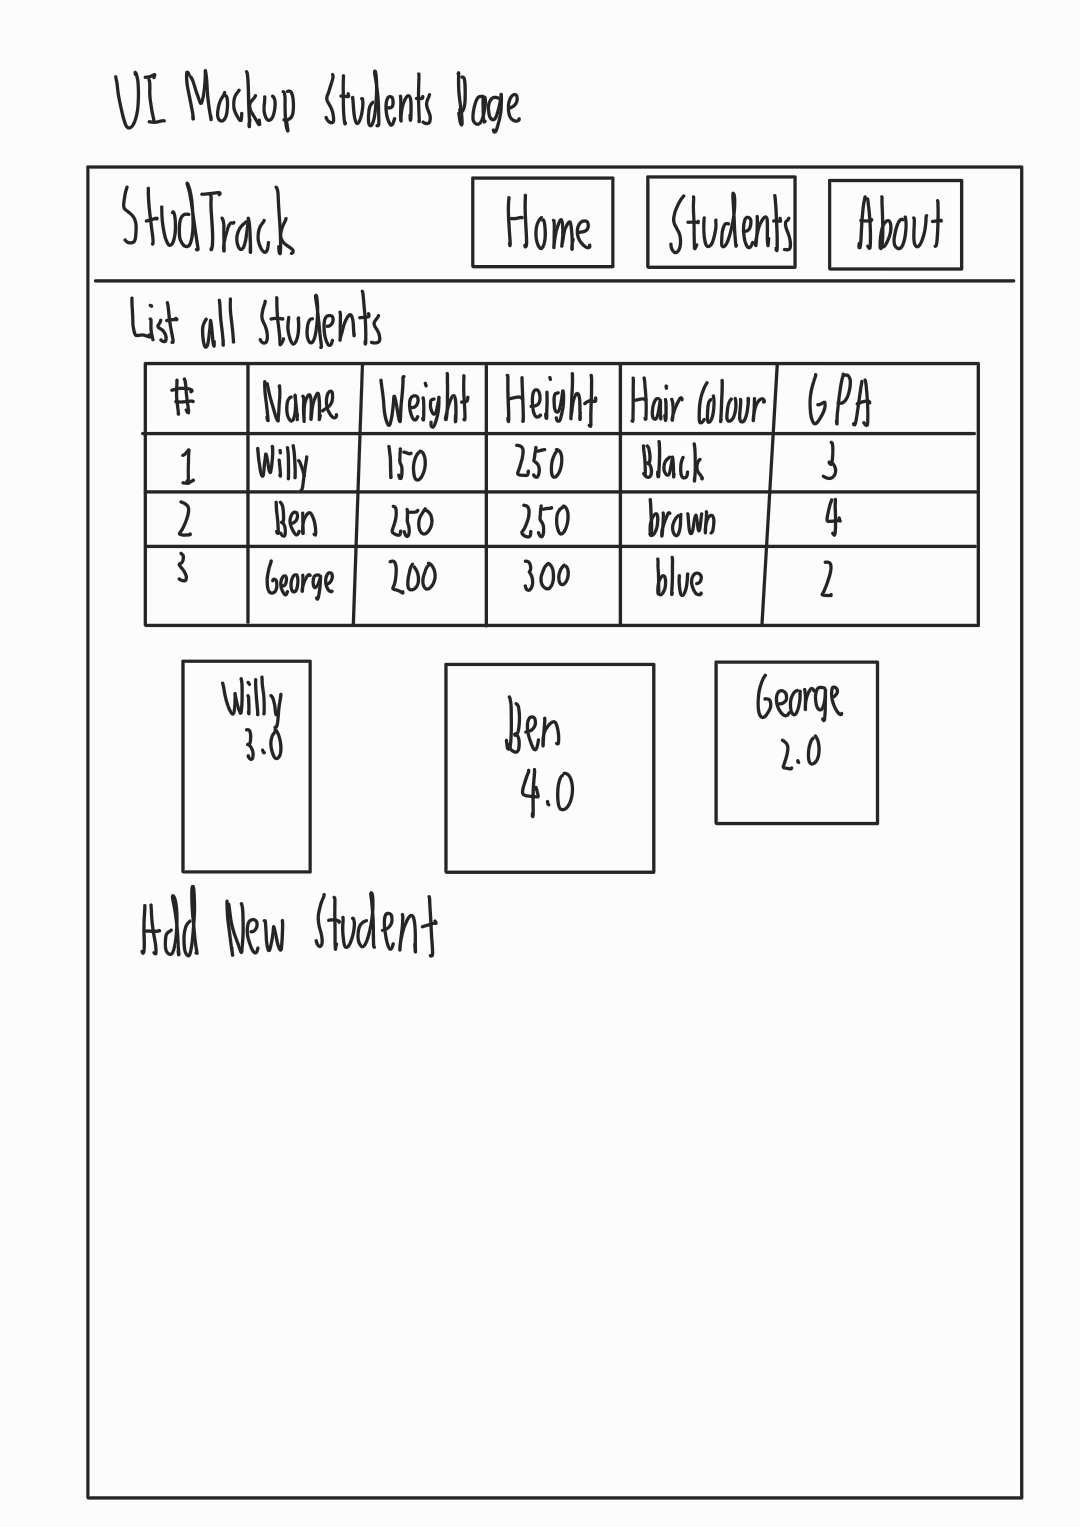 UI Mockup Students Page
StudTrack Home Students About
List all students
# Name Weight Height Hair Colour GPA
1 Willy 150 250 Black 3
2 Ben 250 250 brown 4
3 George 200 300 blue 2
Willy
3.0
Ben
4.0
George
2.0
Add New Student